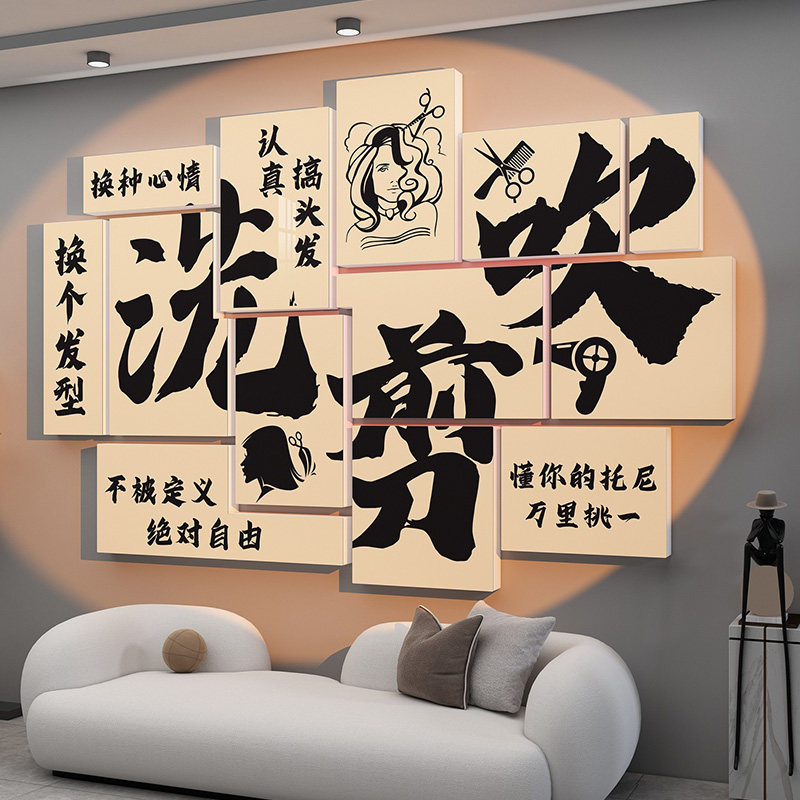 换种心情
换个发型
洗
认真
搞头发
剪
吹
不被定义
绝对自由
懂你的托尼
万里挑一